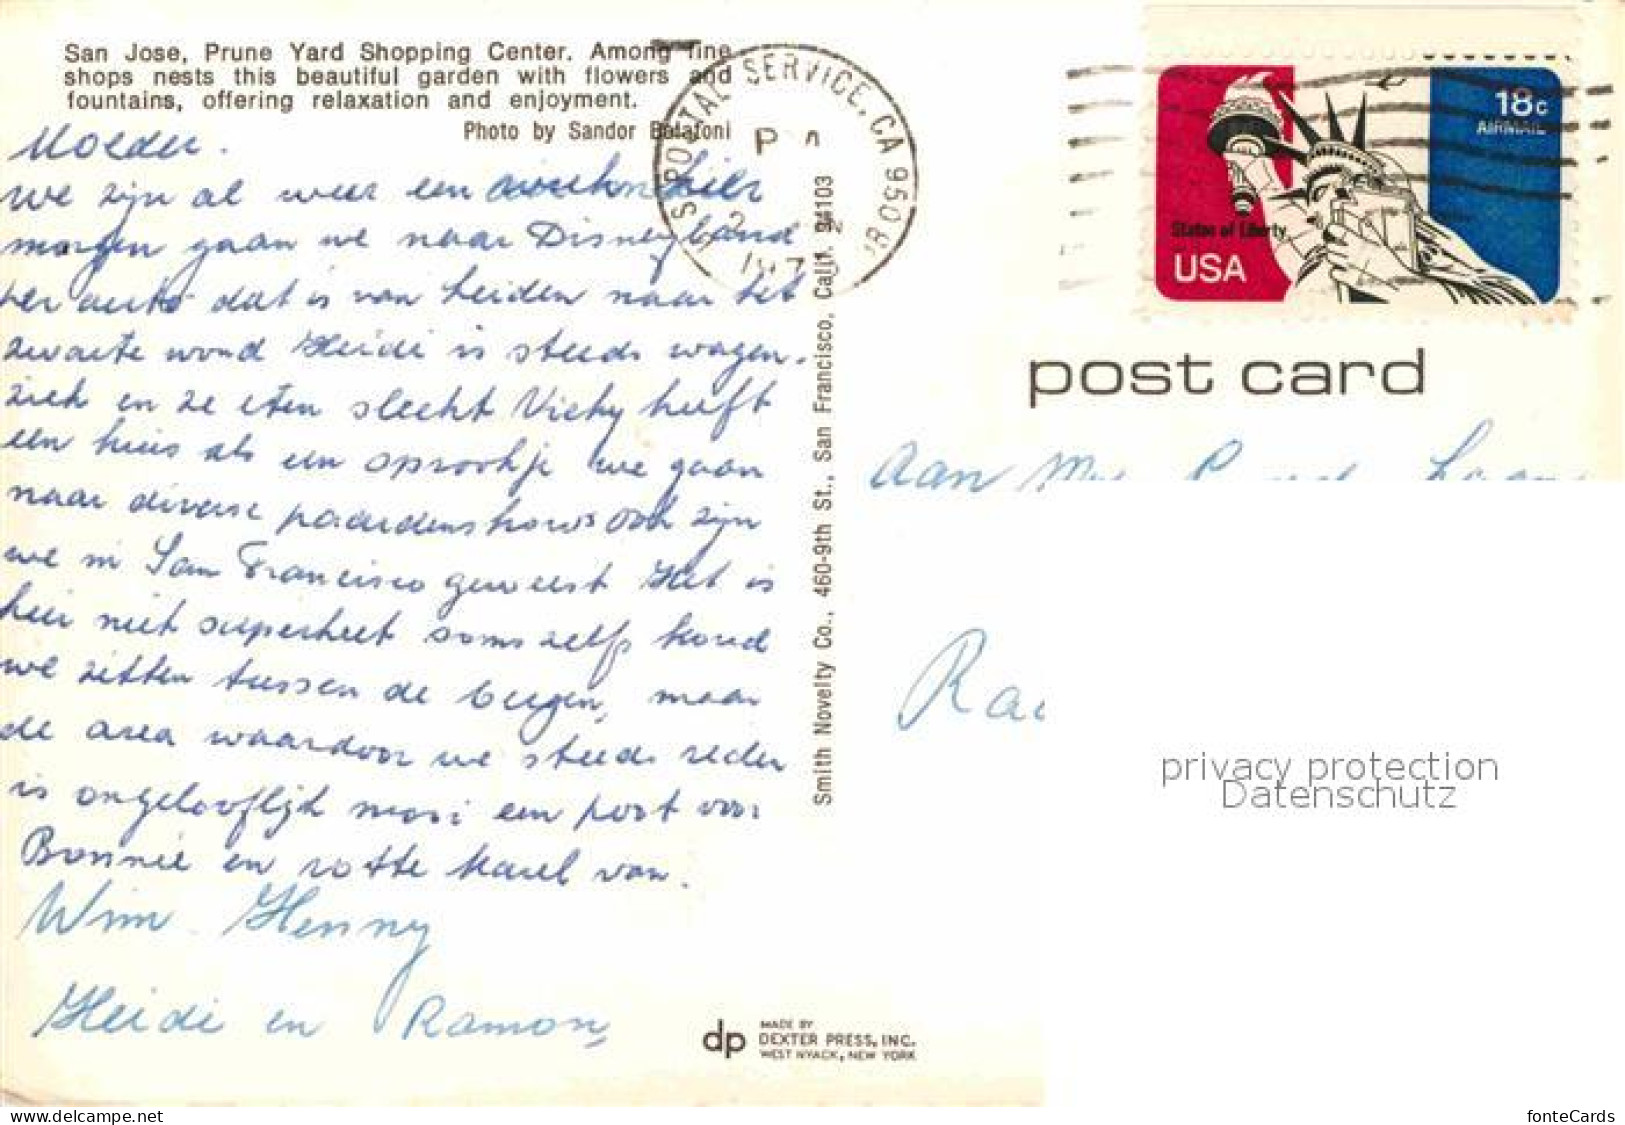 San Jose, Prune Yard Shopping Center. Among fine
shops nests this beautiful garden with flowers and
fountains, offering relaxation and enjoyment.
Photo by Sandor Balatoni
Moeder.
We zijn al weer een hier
morgen gaan we naar Disneyland
per auto dat is van Leiden naar het
zwarte woud Heidi is steeds wagen-
ziek en ze eten slecht Vicky heeft
een huis als een sprookje we gaan
naar diverse paardenshows ook zijn
we in San Francisco geweest Het is
hier niet superheet soms zelfs koud
we zitten tussen de bergen, maar
de area waardoor we steeds reden
is ongelooflijk mooi een poot voor
Bonnie en rotte Karel van.
Wim Henny
Heidi en Ramon
POSTAL SERVICE, CA 950
P
197
18c
AIRMAIL
Statue of Liberty
USA
post card
Aan
Smith Novelty Co., 460-9th St., San Francisco, Calif. 94103
dp
MADE BY
DEXTER PRESS, INC.
WEST NYACK, NEW YORK
privacy protection
Datenschutz
fonteCards